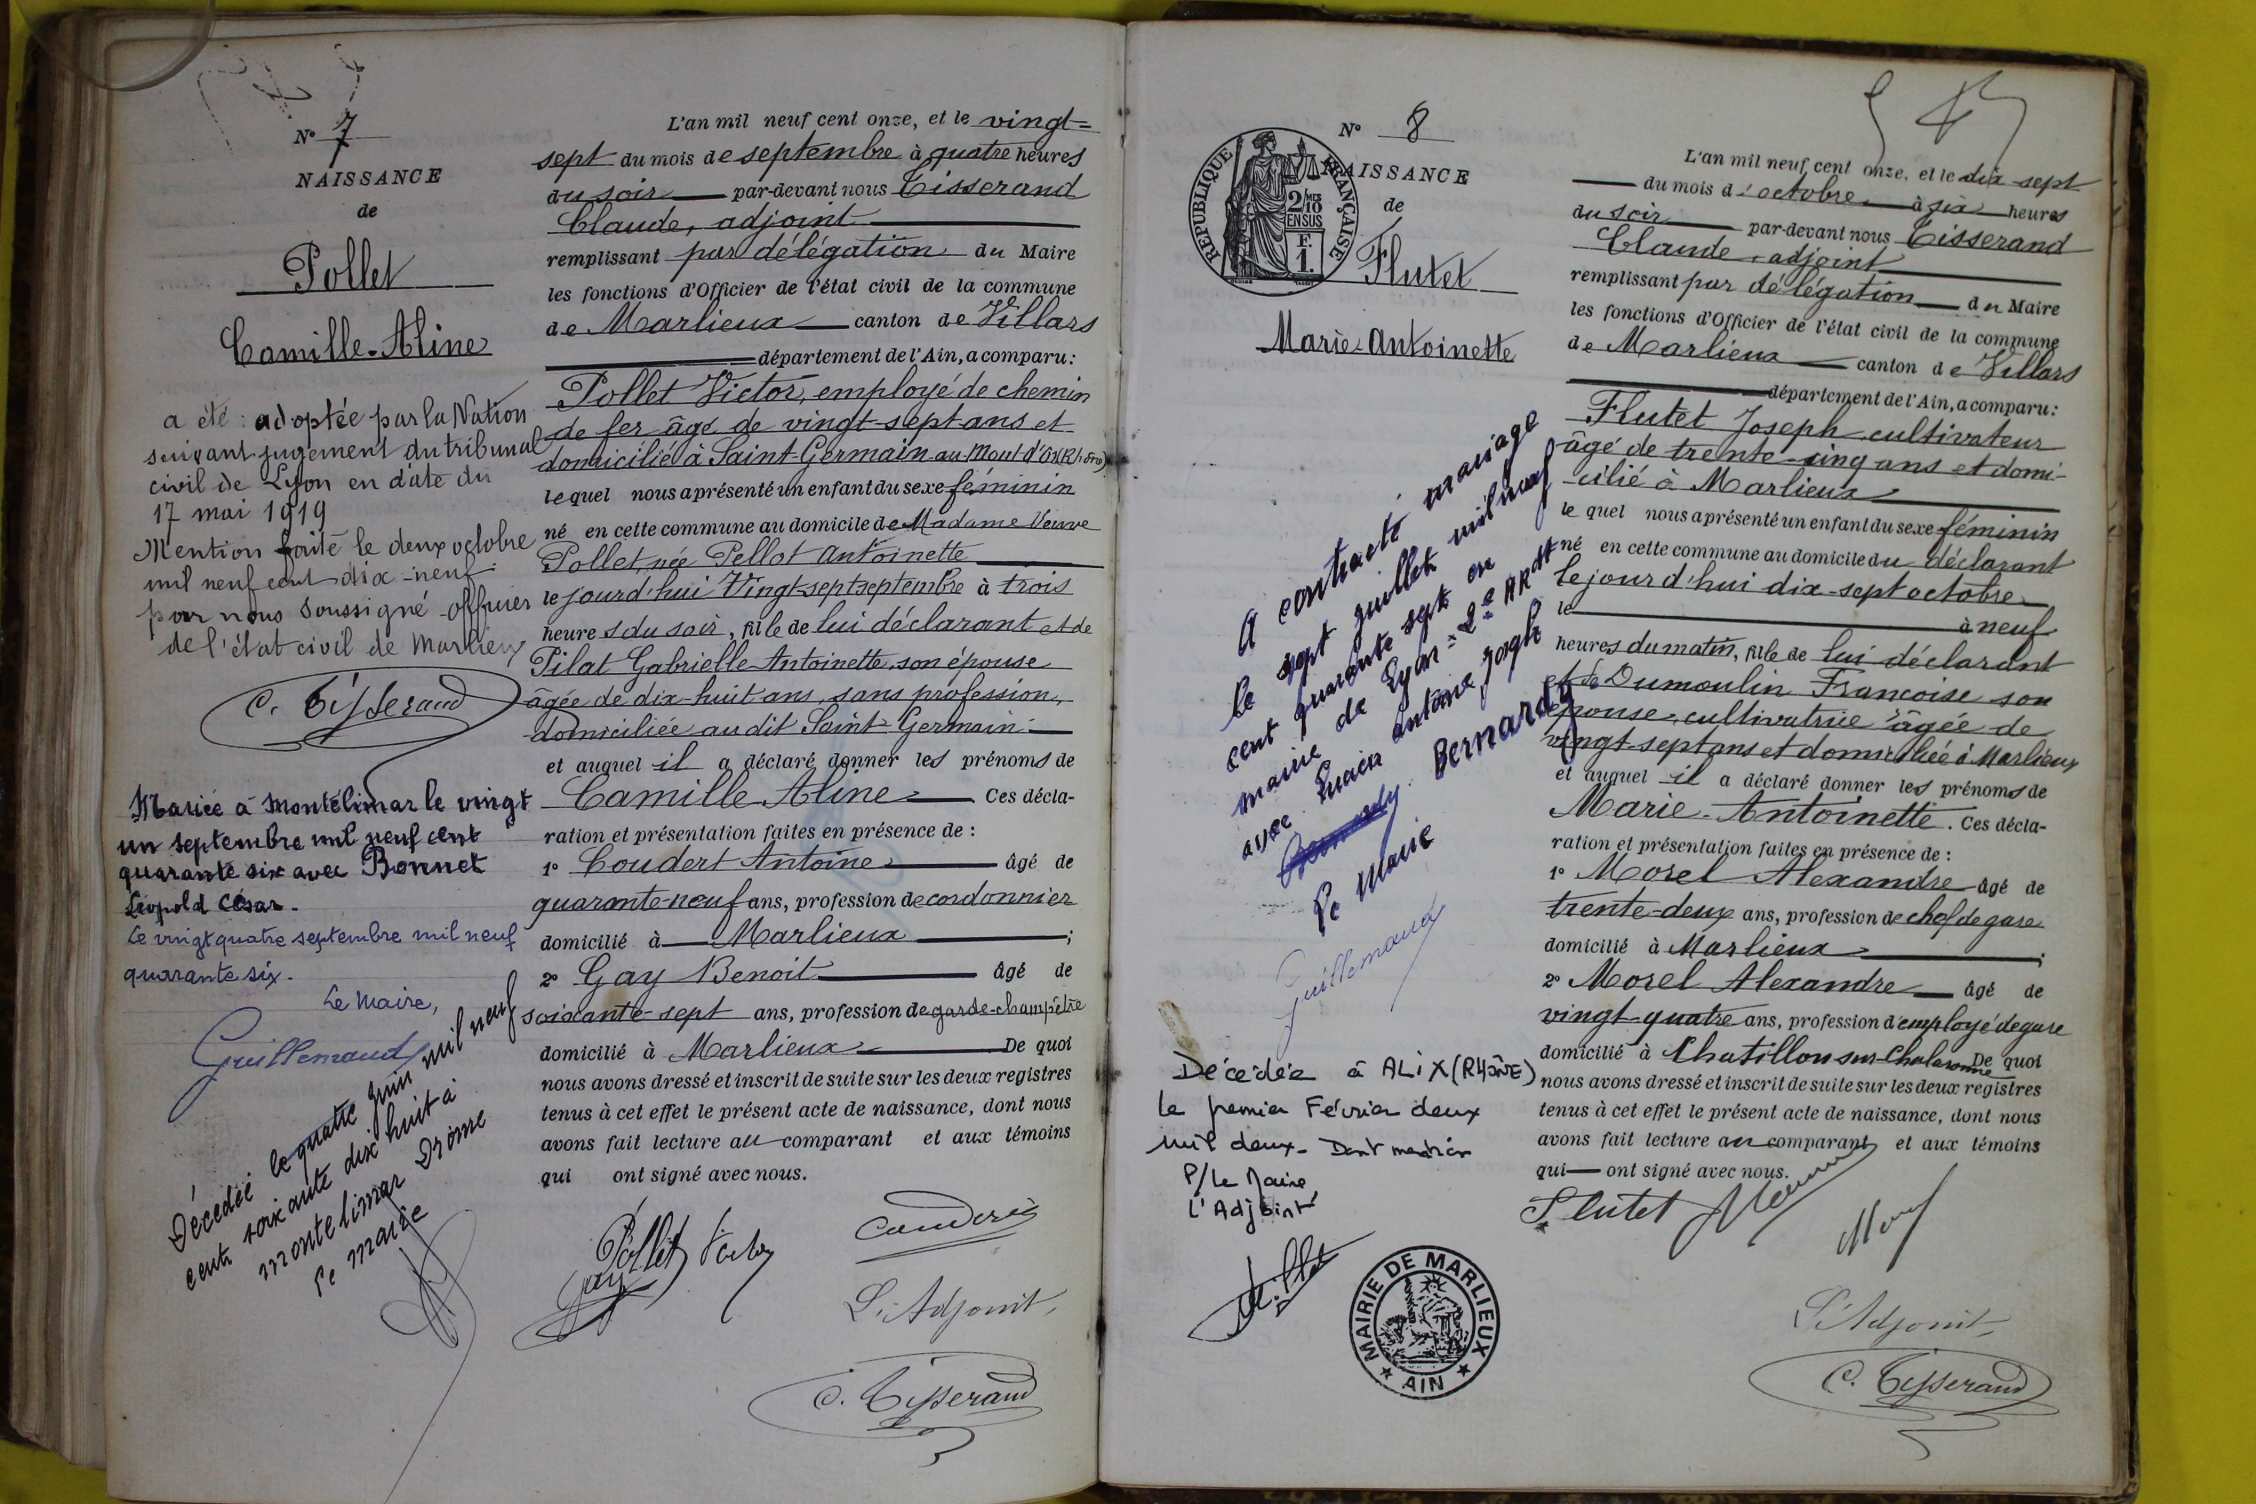 N° 7
NAISSANCE
de
Pollet
Camille-Aline
a été adoptée par la Nation
suivant jugement du tribunal
civil de Lyon en date du
17 mai 1919
Mention faite le deux octobre
mil neuf cent dix-neuf
par nous soussigné officier
de l'état civil de Marlieux
C. Tisserand
Mariée à Montélimar le vingt
un septembre mil neuf cent
quarante six avec Bonnet
Léopold César.
Le vingt quatre septembre mil neuf
quarante six.
Le Maire,
Guillemaud
Décédée le quatre juin mil neuf
cent soixante dix huit à
montelimar Drôme
Le maire
L'an mil neuf cent onze, et le vingt=
sept du mois de septembre à quatre heures
du soir par-devant nous Tisserand
Claude, adjoint
remplissant par délégation du Maire
les fonctions d'Officier de l'état civil de la commune
de Marlieux canton de Villars
département de l'Ain, a comparu :
Pollet Victor, employé de chemin
de fer âgé de vingt-sept ans et
domicilié à Saint-Germain au Mont d'Or (Rhône)
lequel nous a présenté un enfant du sexe féminin
né en cette commune au domicile de Madame Veuve
Pollet, née Pellot Antoinette
le jourd'hui Vingt-sept septembre à trois
heures du soir, fille de lui déclarant et de
Pilat Gabrielle Antoinette, son épouse
âgée de dix-huit ans, sans profession,
domiciliée au dit Saint-Germain
et auquel il a déclaré donner les prénoms de
Camille Aline Ces décla-
ration et présentation faites en présence de :
1° Coudert Antoine âgé de
quarante-neuf ans, profession de cordonnier
domicilié à Marlieux ;
2° Gay Benoit âgé de
soixante-sept ans, profession de garde-champêtre
domicilié à Marlieux De quoi
nous avons dressé et inscrit de suite sur les deux registres
tenus à cet effet le présent acte de naissance, dont nous
avons fait lecture au comparant et aux témoins
qui ont signé avec nous.
Pollet Victor
Gay
Couderc
L'Adjoint,
C. Tisserand
N° 8
NAISSANCE
de
RÉPUBLIQUE FRANÇAISE
2/10 MES
EN SUS
F.
1.
Flutet
Marie-Antoinette
A contracté mariage
le sept juillet mil neuf
cent quarante sept en
mairie de Lyon - 2e ARdt
avec Lucien Antoine Joseph
Bernardy
Le Maire
Guillemaud
Décédée à ALIX (RHÔNE)
le premier Février deux
mil deux - Dont mention
P/Le Maire
L'Adjoint
MAIRIE DE MARLIEUX
★ AIN ★
L'an mil neuf cent onze, et le dix-sept
du mois d'octobre à six heures
du soir par-devant nous Tisserand
Claude, adjoint
remplissant par délégation du Maire
les fonctions d'Officier de l'état civil de la commune
de Marlieux canton de Villars
département de l'Ain, a comparu :
Flutet Joseph cultivateur
âgé de trente-cinq ans et domi-
-cilié à Marlieux
lequel nous a présenté un enfant du sexe féminin
né en cette commune au domicile du déclarant
le jour d'hui dix-sept octobre
le à neuf
heures du matin, fille de lui déclarant
et de Dumoulin Françoise son
épouse, cultivatrice âgée de
vingt-sept ans et domiciliée à Marlieux
et auquel il a déclaré donner les prénoms de
Marie-Antoinette. Ces décla-
ration et présentation faites en présence de :
1° Morel Alexandre âgé de
trente-deux ans, profession de chef de gare
domicilié à Marlieux ;
2° Morel Alexandre âgé de
vingt-quatre ans, profession d'employé de gare
domicilié à Chatillon sur-Chalaronne De quoi
nous avons dressé et inscrit de suite sur les deux registres
tenus à cet effet le présent acte de naissance, dont nous
avons fait lecture au comparant et aux témoins
qui ont signé avec nous.
Flutet
Morel
L'Adjoint,
C. Tisserand